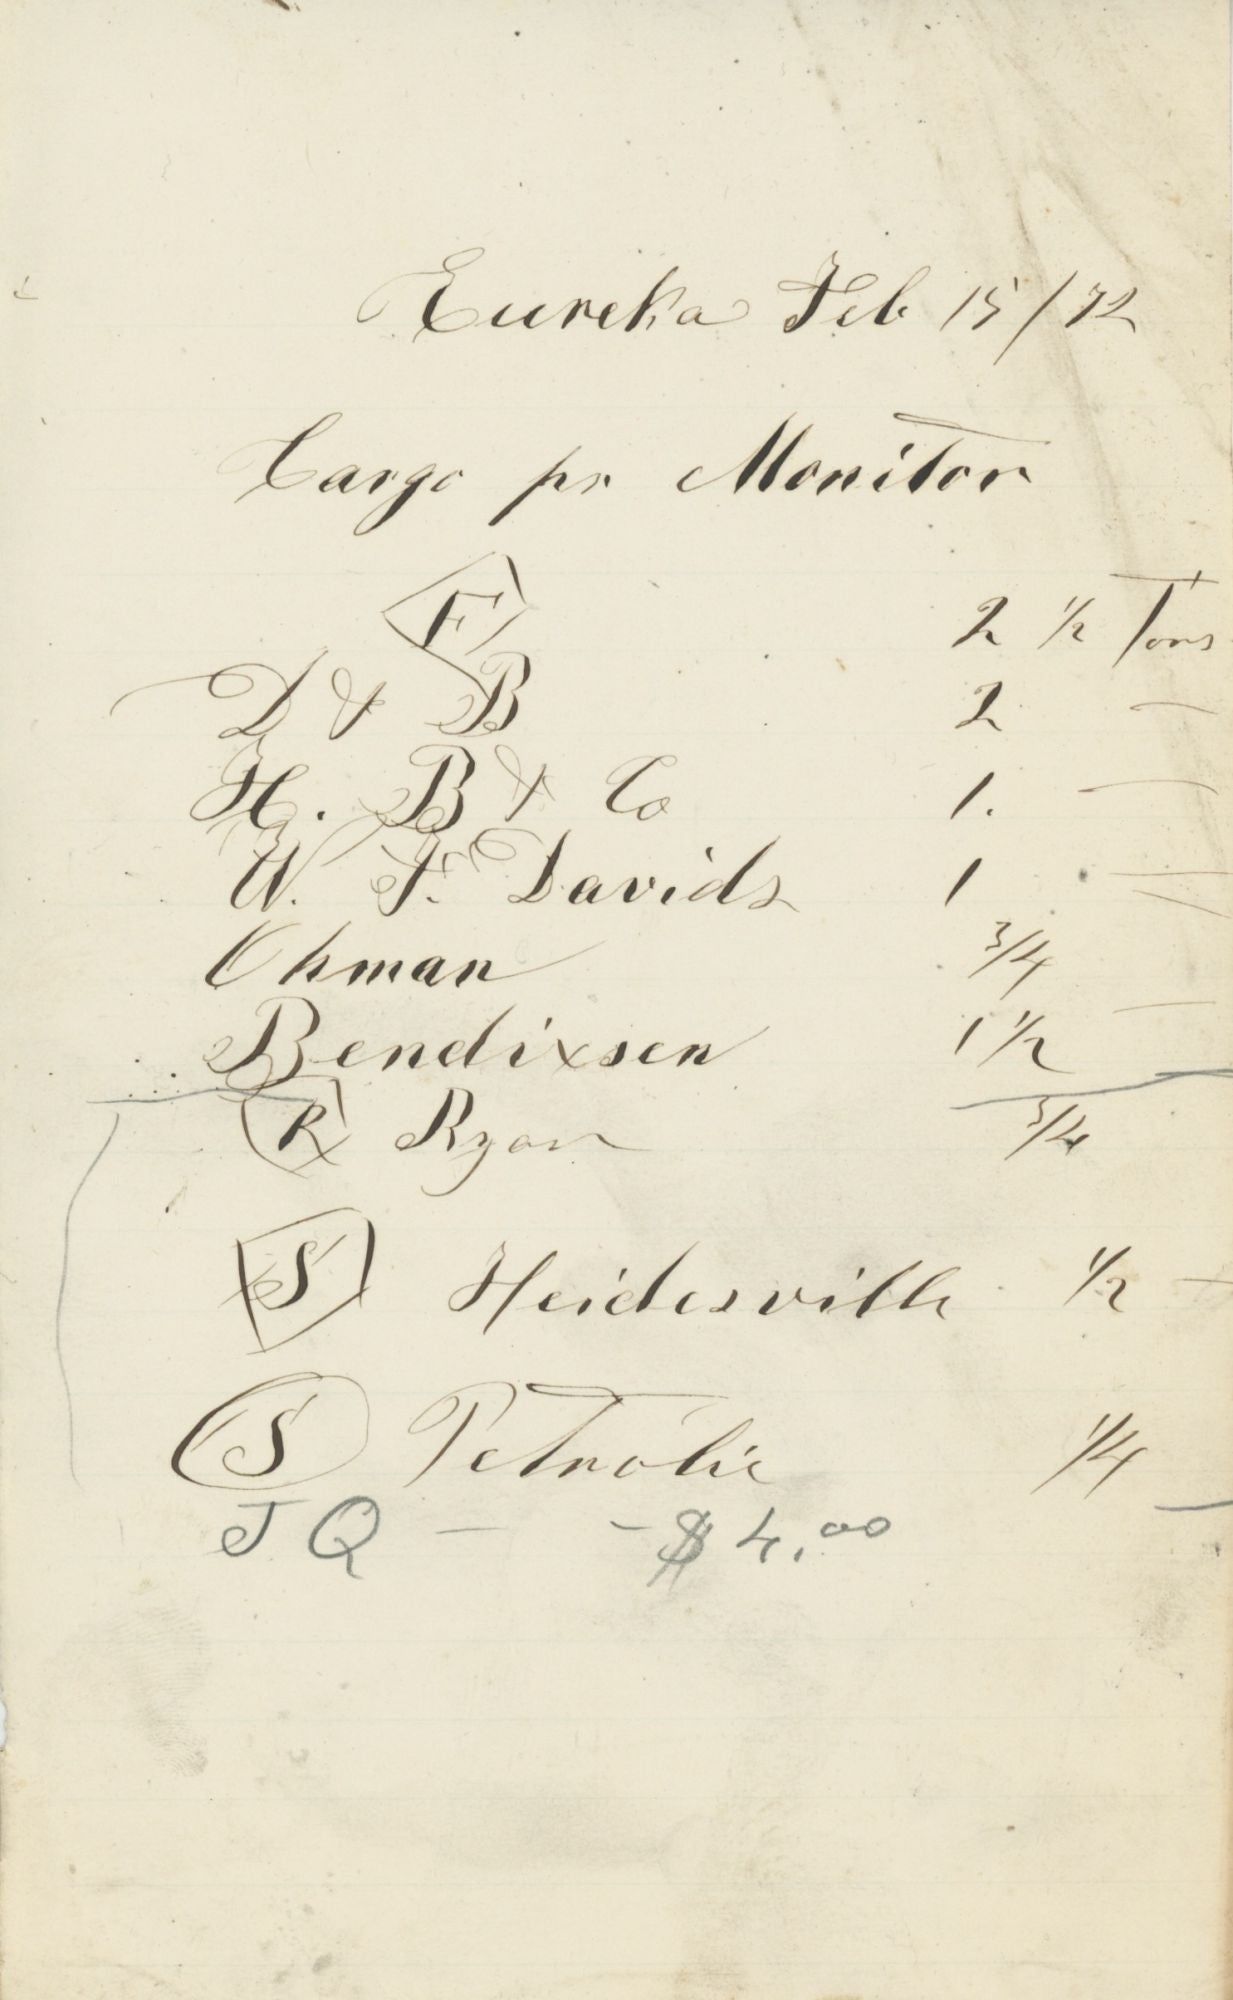 Eureka Feb 15/72
Cargo pr Monitor
F 2 1/2 Tons
D & B 2 —
H. B & Co 1. —
W. F. Davids 1 —
Ohman 3/4
Bendixsen 1 1/2 —
R Ryan 3/4
S Heidesville 1/2 —
S Petrolie 1/4
J Q — - $4.00